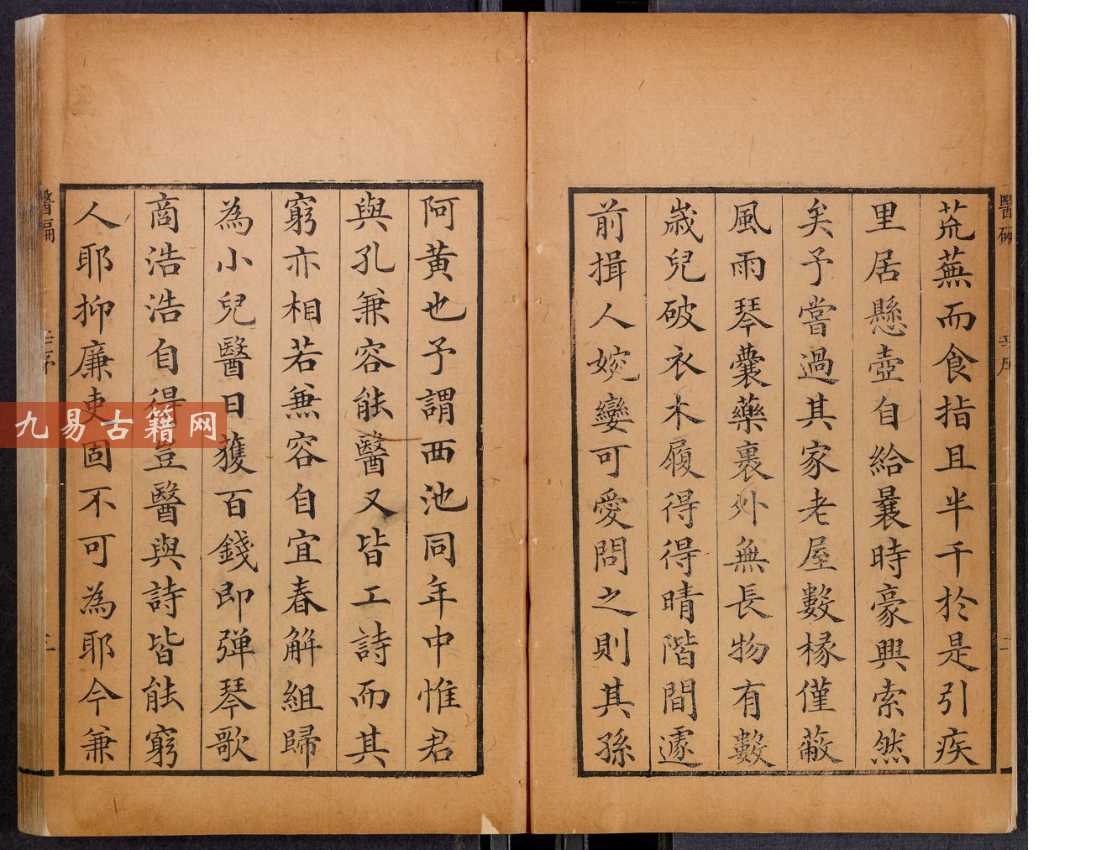 荒蕪而食指且半千於是引疾
里居懸壺自給曩時豪興索然
矣予嘗過其家老屋數椽僅蔽
風雨琴囊藥裹外無長物有數
歲兒破衣木履得得晴階間遽
前揖人婉孌可愛問之則其孫
阿黃也予謂西池同年中惟君
與孔兼容能醫又皆工詩而其
窮亦相若兼容自宜春解組歸
為小兒醫日獲百錢即彈琴歌
商浩浩自得豈醫與詩皆能窮
人耶抑廉吏固不可為耶今兼
醫碥
九易古籍网